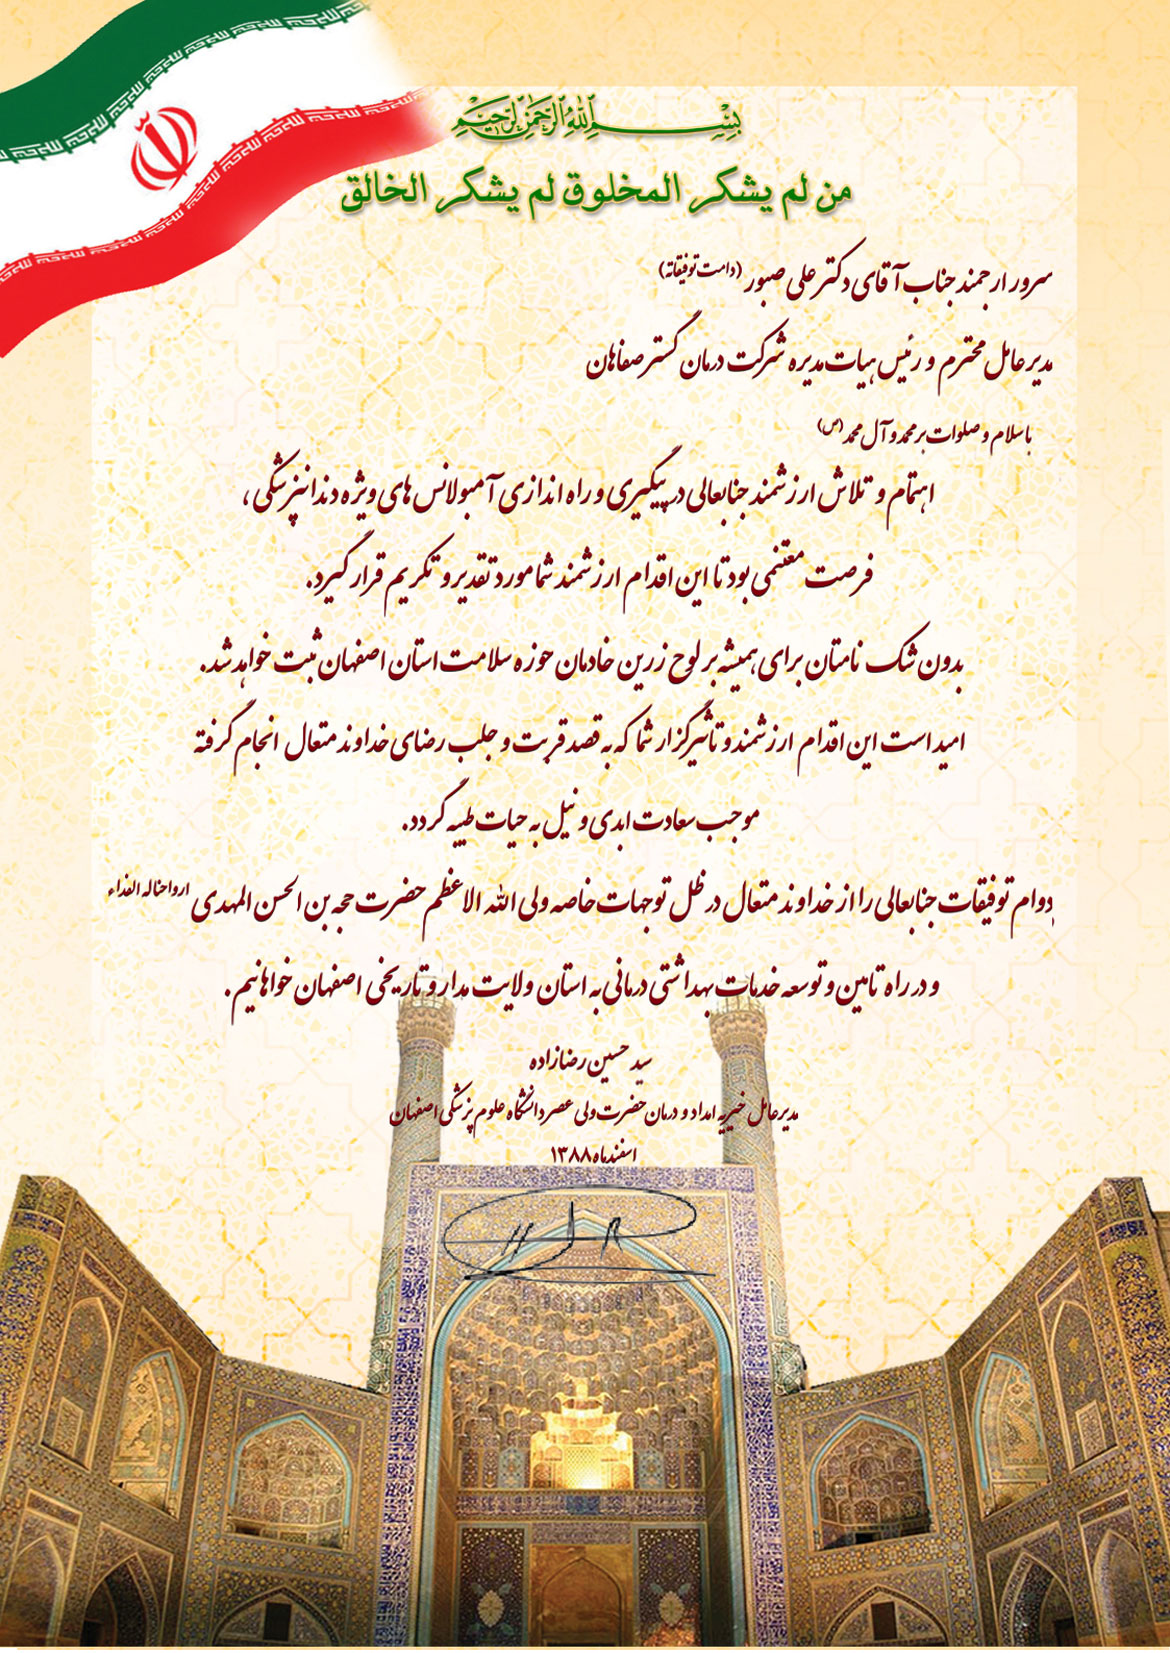 بسم الله الرحمن الرحیم
من لم یشکر المخلوق لم یشکر الخالق
سرور ارجمند جناب آقای دکتر علی صبور (دامت توفیقاته)
مدیر عامل محترم و رئیس هیات مدیره شرکت درمان گستر صفاهان
با سلام و صلوات بر محمد و آل محمد (ص)
اهتمام و تلاش ارزشمند جنابعالی در پیگیری و راه اندازی آمبولانس های ویژه دندانپزشکی ،
فرصت مغتنمی بود تا این اقدام ارزشمند شما مورد تقدیر و تکریم قرار گیرد.
بدون شک نامتان برای همیشه بر لوح زرین خادمان حوزه سلامت استان اصفهان ثبت خواهد شد.
امید است این اقدام ارزشمند و تأثیرگزار شما که به قصد قربت و جلب رضای خداوند متعال انجام گرفته
موجب سعادت ابدی و نیل به حیات طیبه گردد.
دوام توفیقات جنابعالی را از خداوند متعال در ظل توجهات خاصه ولی الله الاعظم حضرت حجه بن الحسن المهدی ارواحنا له الفداء
و در راه تامین و توسعه خدمات بهداشتی درمانی به استان ولایت مدار و تاریخی اصفهان خواهانیم.
سید حسین رضازاده
مدیر عامل خیریه امداد و درمان حضرت ولی عصر دانشگاه علوم پزشکی اصفهان
اسفند ماه ۱۳۸۸